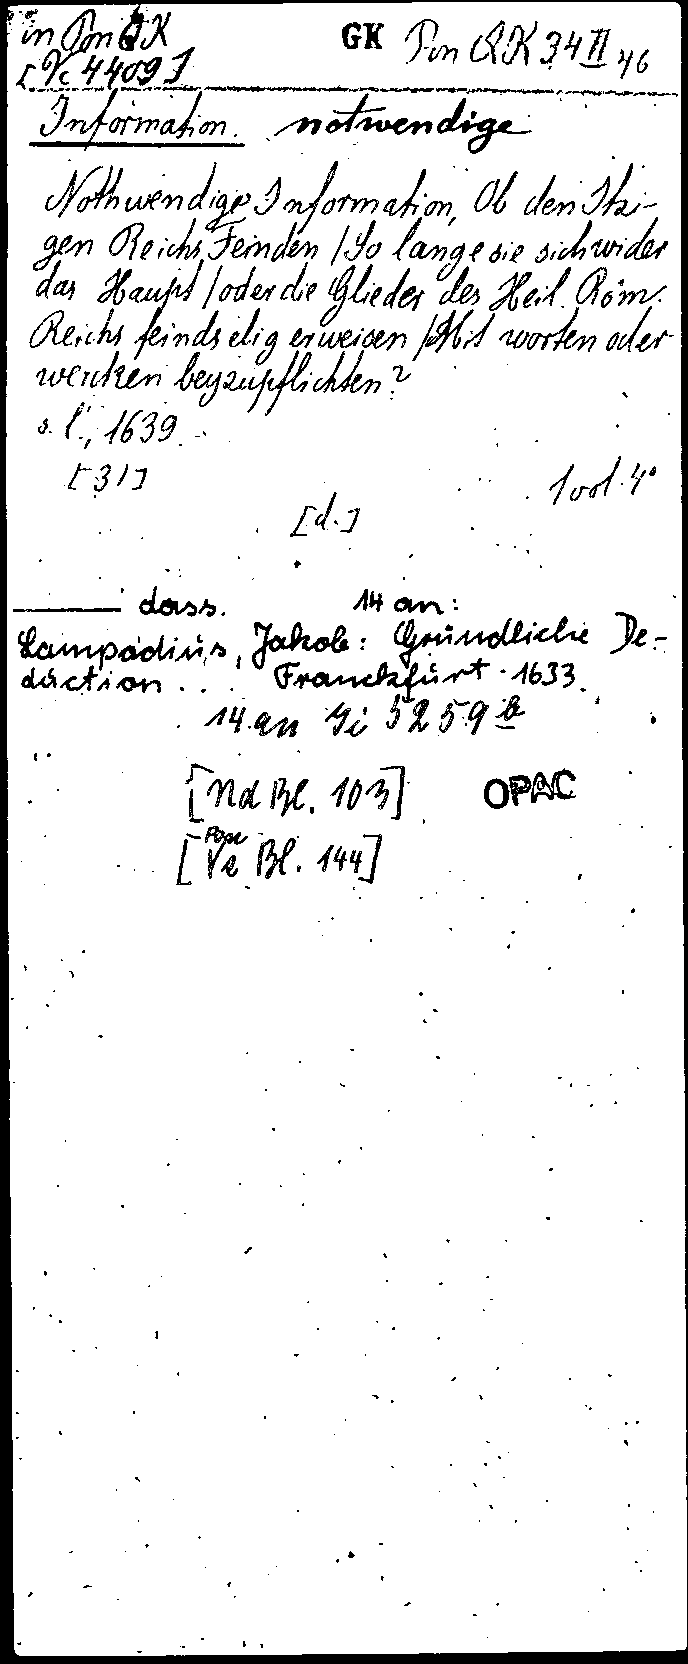 in Pon QK GK Pon QK 34 II 46
[Vc 4409]
Information. notwendige
Nothwendige Information, Ob den Itzi-
gen Reichs Feinden / So lange sie sich wider
das Haupt / oder die Glieder des Heil. Röm.
Reichs feindselig erweisen / Mit worten oder
wercken beyzupflichten?
s. l., 1639.
[31] 1 vol. 4°
[d.]
——— dass. 14 an:
Lampadius, Jakob: Gründliche De-
duction... Franckfurt 1633.
14 an Gi 5259 a
[Nd Bl. 103] OPAC
[Pon Vc Bl. 144]